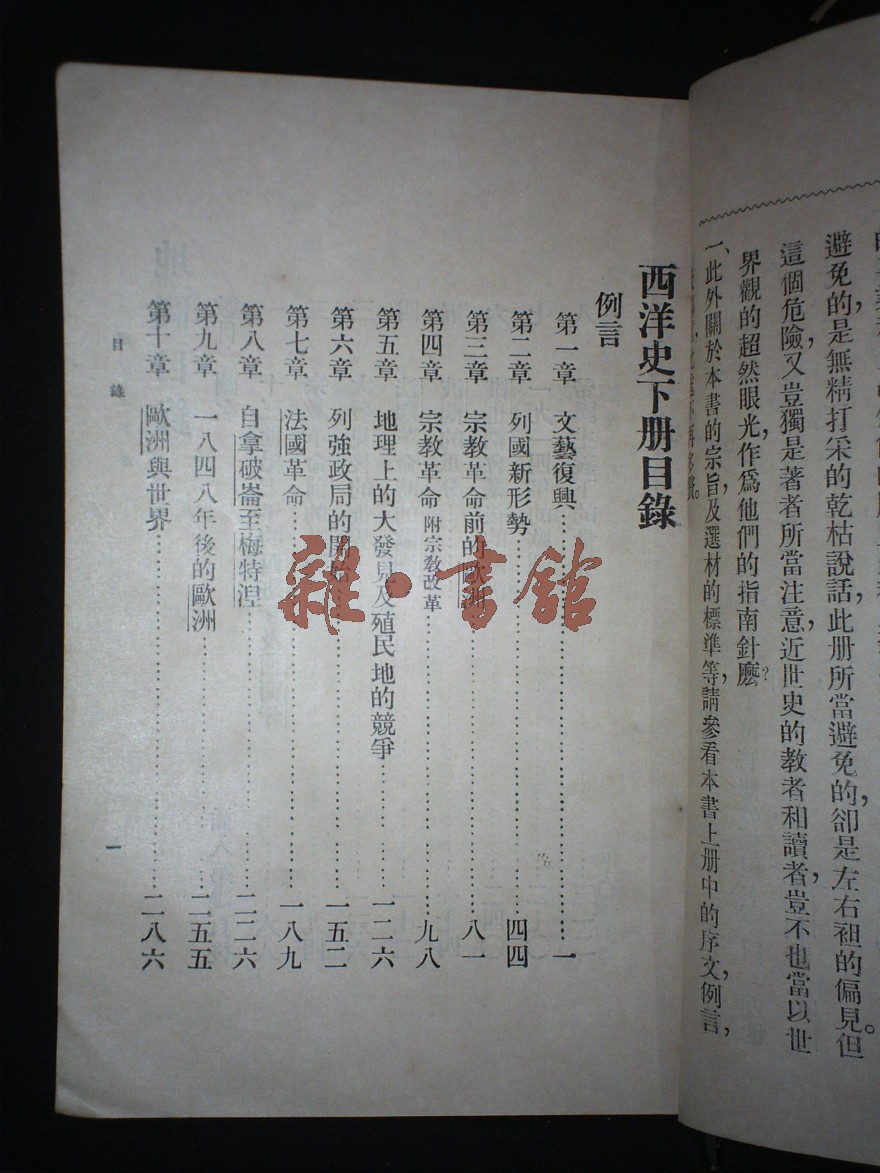 避免的是無精打采的乾枯說話,此册所當避免的,卻是左右袒的偏見。但
這個危險,又豈獨是著者所當注意,近世史的教者和讀者,豈不也當以世
界觀的超然眼光,作爲他們的指南針麽?
一、此外關於本書的宗旨,及選材的標準等,請參看本書上册中的序文,例言,
西洋史下册目錄
例言
第一章 文藝復興……一
第二章 列國新形勢……四四
第三章 宗教革命前的歐洲……八一
第四章 宗教革命 附宗教改革……九八
第五章 地理上的大發見及殖民地的競爭……一二六
第六章 列強政局的開始……一五二
第七章 法國革命……一八九
第八章 自拿破崙至梅特湼……二二六
第九章 一八四八年後的歐洲……二五五
第十章 歐洲與世界……二八六
目錄
一
雜·書館